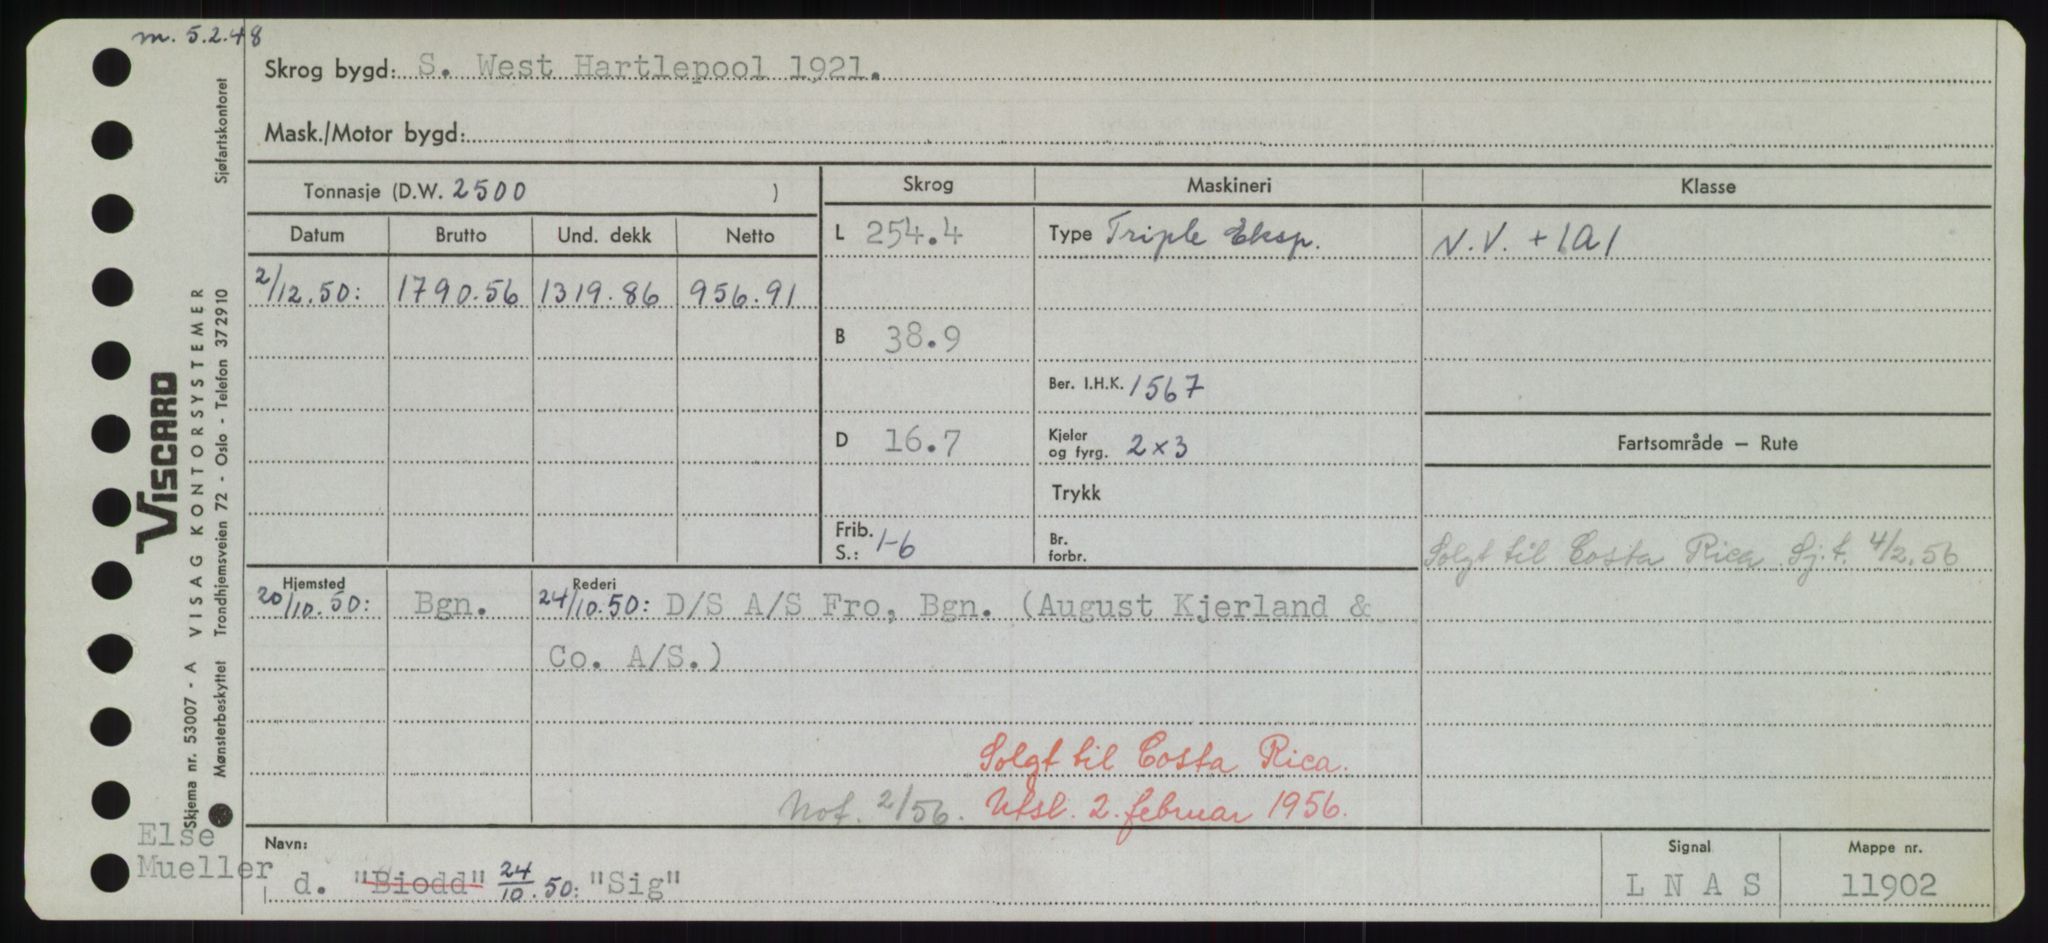 m. 5.2.48
Skrog bygd: S. West Hartlepool 1921.
Mask./Motor bygd:
Tonnasje (D.W. 2500 )
Skrog Maskineri Klasse
Datum Brutto Und. dekk Netto
L 254.4 Type Triple Eksp. N.V. + 1A1
2/12.50: 1790.56 1319.86 956.91
B 38.9
Ber. I.H.K. 1567
D 16.7 Kjeler og fyrg. 2x3
Fartsområde – Rute
Trykk
Frib. S.: 1-6 Br. forbr.
Solgt til Costa Rica Sj.t. 4/2.56
Hjemsted Rederi
20/10.50: Bgn. 24/10.50: D/S A/S Fro, Bgn. (August Kjerland &
Co. A/S.)
Solgt til Costa Rica.
Not. 2/56. Utsl. 2. februar 1956.
Else
Mueller
Navn: Signal Mappe nr.
d. "Biodd" 24/10.50: "Sig" L N A S 11902
Sjøfartskontoret
VISCARD
VISAG KONTORSYSTEMER
Trondhjemsveien 72 - Oslo - Telefon 372910
Skjema nr. 53007 - A
Mønsterbeskyttet